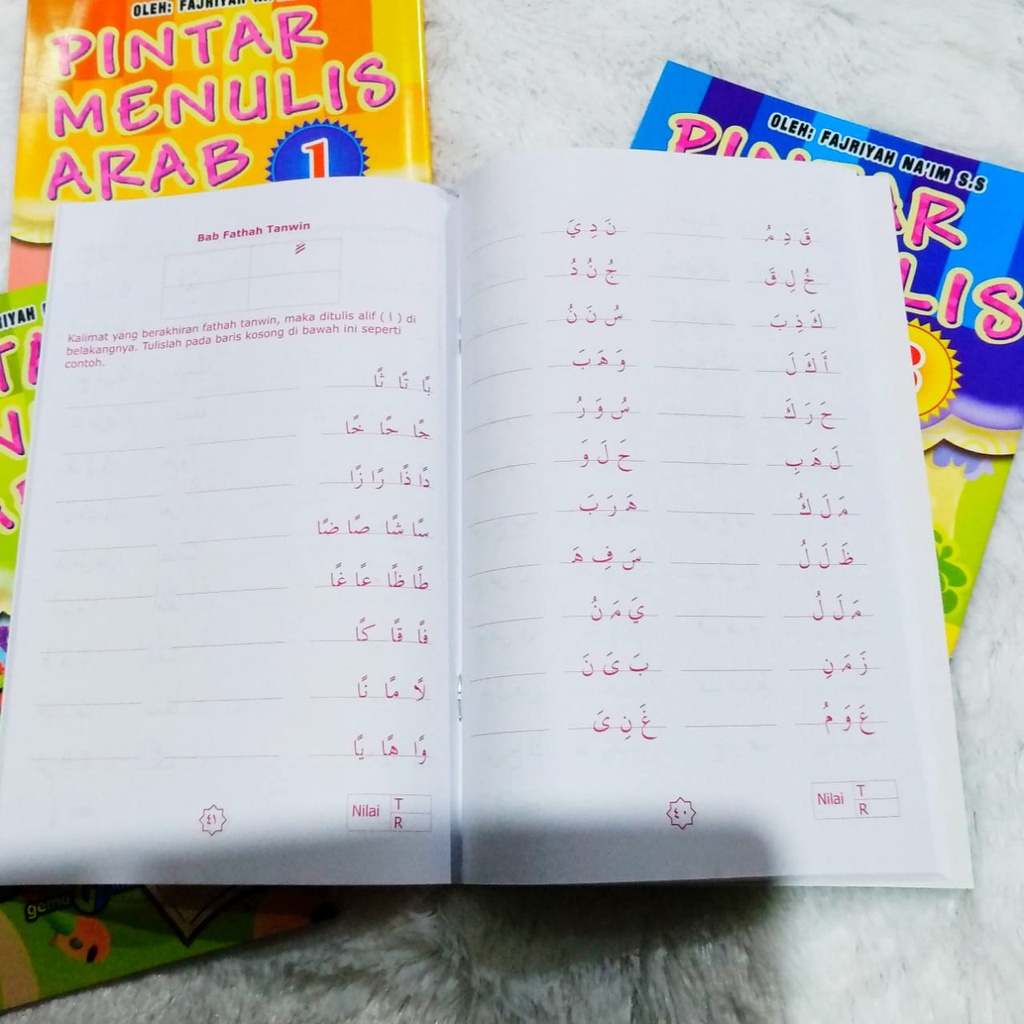 OLEH: FAJRIYAH
PINTAR
MENULIS
ARAB
1
OLEH: FAJRIYAH NA'IM S.S
قَ دِ مُ
نَ دِ يَ
خُ لِ قَ
جُ نُ دُ
كَ ذِ بَ
سُ نَ نُ
أَ كَ لَ
وَ هَ بَ
حَ رَ كَ
سُ وَ رُ
لَ هَ بِ
حَ لَ وَ
مَ لَ كُ
هَ رَ بَ
ظَ لَ لُ
سَ فِ هَ
مَ لَ لُ
يَ مَ نُ
زَ مَ نِ
بَ ىَ نَ
عَ وَ مُ
غَ نِ ىَ
Nilai T
R
٤٠
Bab Fathah Tanwin
Kalimat yang berakhiran fathah tanwin, maka ditulis alif ( ا ) di
belakangnya. Tulislah pada baris kosong di bawah ini seperti
contoh.
بًا تًا ثًا
جًا حًا خًا
دًا ذًا رًا زًا
سًا شًا صًا ضًا
طًا ظًا عًا غًا
فًا قًا كًا
لاً مًا نًا
وًا هًا يًا
Nilai T
R
٤١